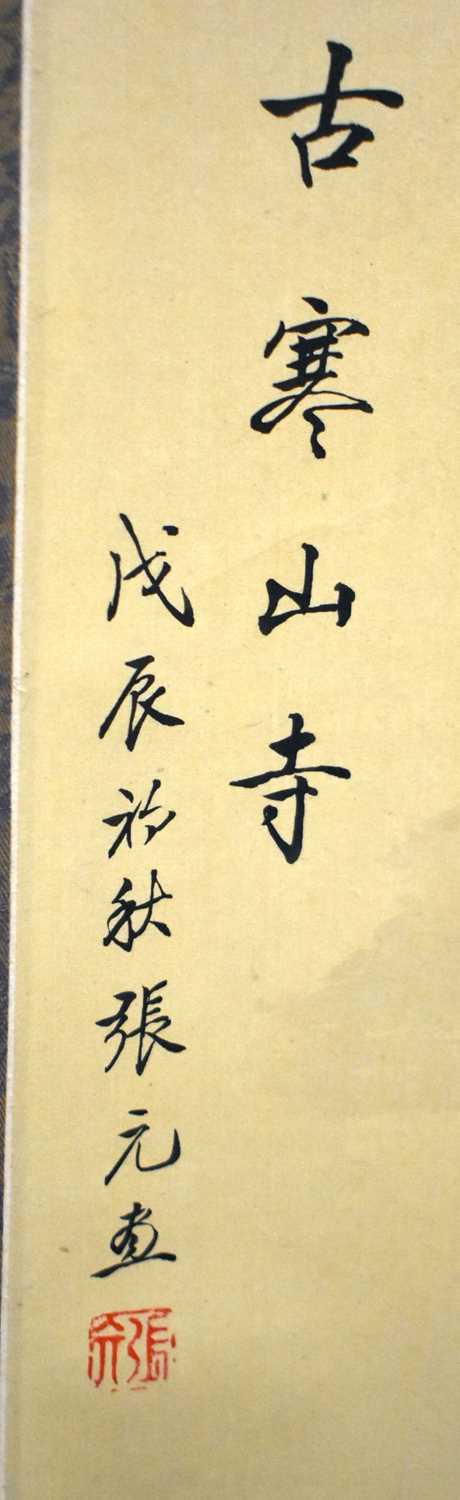 古寒山寺
戊辰初秋張元畫
張元